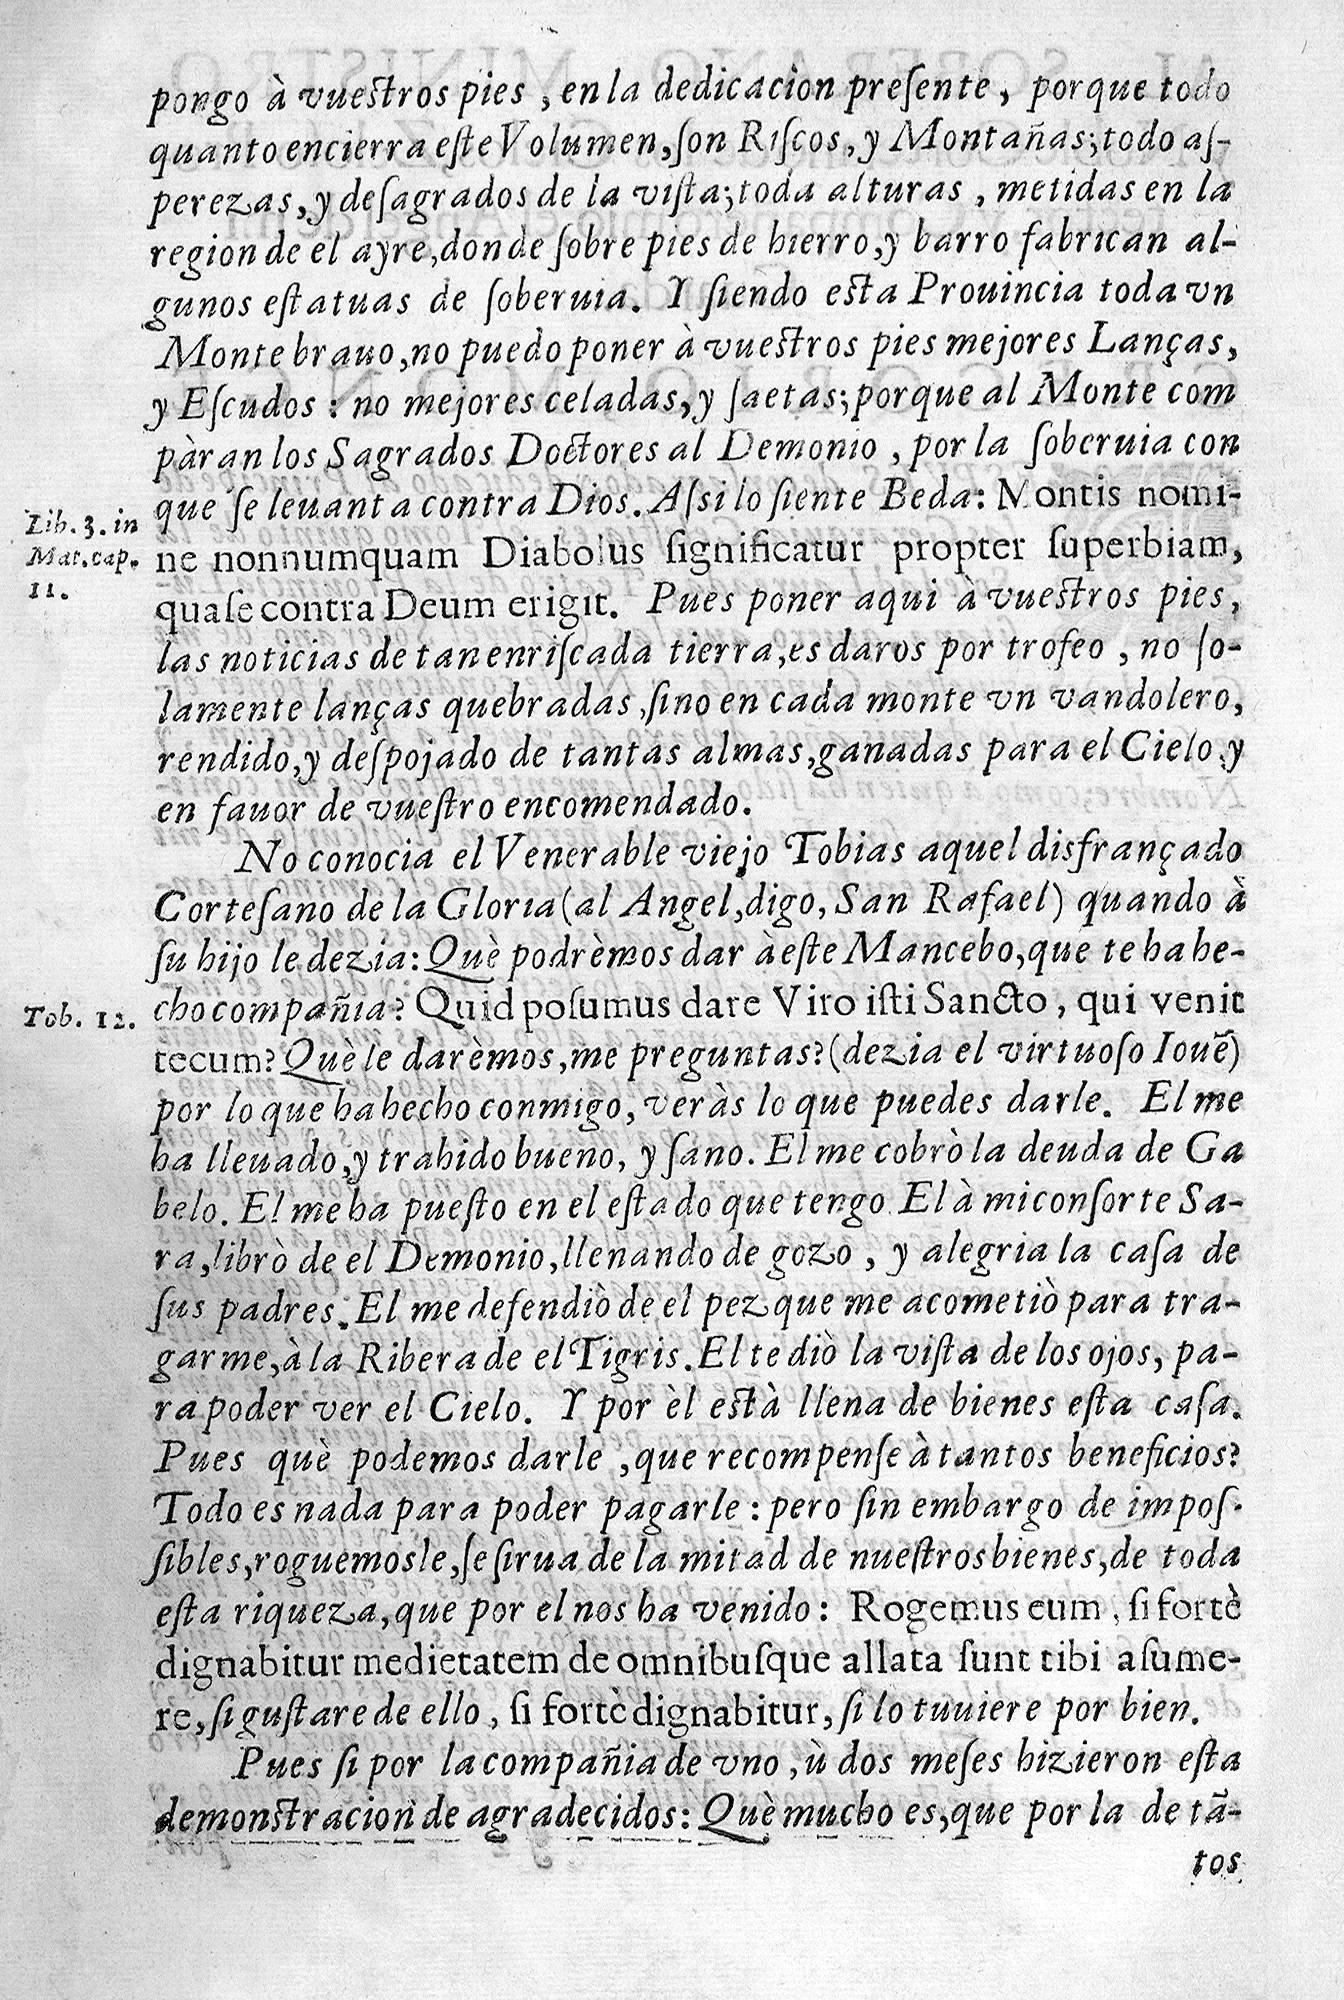 pongo à vuestros pies, en la dedicacion preſente, porque todo
quanto encierra eſte Volumen, ſon Riſcos, y Montañas; todo aſ-
perezas, y deſagrados de la viſta; toda alturas, metidas en la
region de el ayre, donde ſobre pies de hierro, y barro fabrican al-
gunos eſtatuas de ſoberuia. Y ſiendo esta Prouincia toda vn
Monte brauo, no puedo poner à vuestros pies mejores Lanças,
y Eſcudos: no mejores celadas, y ſaetas; porque al Monte com
pàran los Sagrados Doctores al Demonio, por la ſoberuia con
que ſe leuanta contra Dios. Aſsi lo ſiente Beda: Montis nomi-
Lib. 3. in
Mat. cap.
11.
ne nonnumquam Diabolus ſignificatur propter ſuperbiam,
quaſe contra Deum erigit. Pues poner aqui à vuestros pies,
las noticias de tan enriſcada tierra, es daros por trofeo, no ſo-
lamente lanças quebradas, ſino en cada monte vn vandolero,
rendido, y deſpojado de tantas almas, ganadas para el Cielo, y
en fauor de vueſtro encomendado.
No conocia el Venerable viejo Tobias aquel disfrançado
Corteſano de la Gloria (al Angel, digo, San Rafael) quando à
ſu hijo le dezia: Què podrèmos dar à eſte Mancebo, que te ha he-
cho compañia? Quid poſumus dare Viro iſti Sancto, qui venit
Tob. 12.
tecum? Què le darèmos, me preguntas? (dezia el virtuoſo Iouẽ)
por lo que ha hecho conmigo, veràs lo que puedes darle. El me
ha lleuado, y trahido bueno, y ſano. El me cobrò la deuda de Ga
belo. El me ha pueſto en el eſtado que tengo. El à mi conſorte Sa-
ra, librò de el Demonio, llenando de gozo, y alegria la caſa de
ſus padres. El me defendiò de el pez que me acometiò para tra-
garme, à la Ribera de el Tigris. El te diò la viſta de los ojos, pa-
ra poder ver el Cielo. Y por èl està llena de bienes eſta caſa.
Pues què podemos darle, que recompenſe à tantos beneficios?
Todo es nada para poder pagarle: pero ſin embargo de impoſ-
ſibles, roguemosle, ſe ſirua de la mitad de nueſtros bienes, de toda
eſta riqueza, que por el nos ha venido: Rogemus eum, ſi fortè
dignabitur medietatem de omnibuſque allata ſunt tibi aſume-
re, ſi guſtare de ello, ſi fortè dignabitur, ſi lo tuuiere por bien.
Pues ſi por la compañia de vno, ù dos meſes hizieron eſta
demonstracion de agradecidos: Què mucho es, que por la de tã-
tos